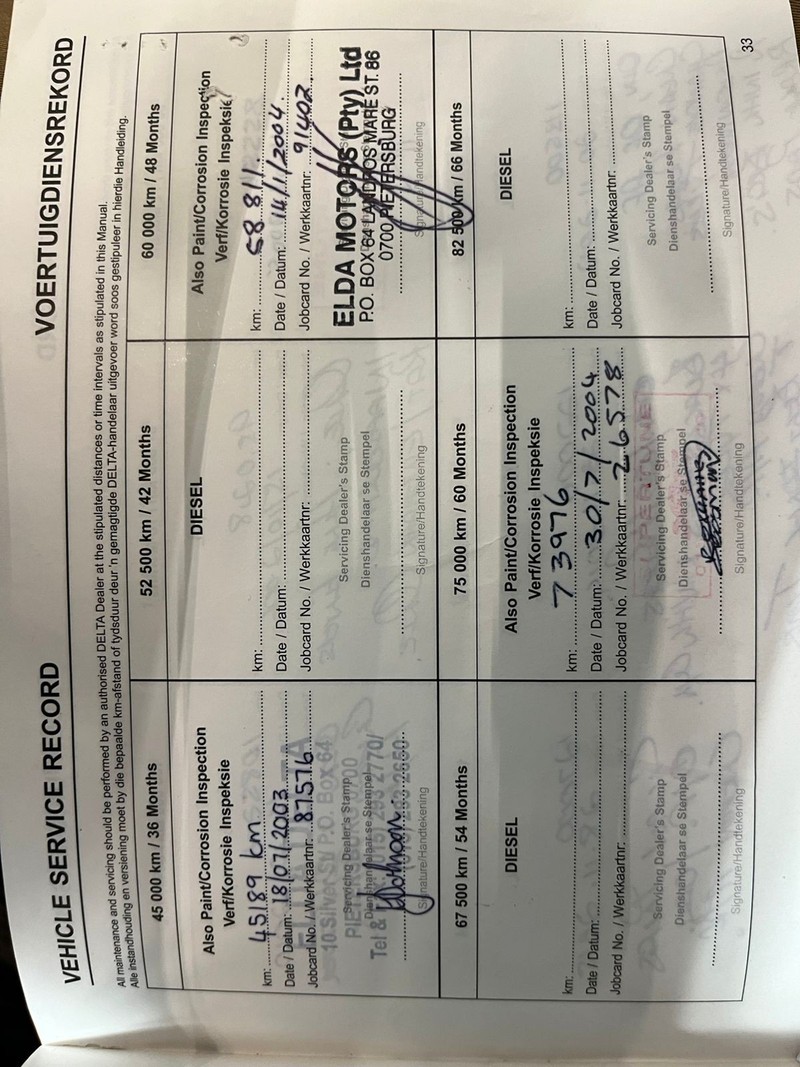 VEHICLE SERVICE RECORD
VOERTUIGDIENSREKORD
All maintenance and servicing should be performed by an authorised DELTA Dealer at the stipulated distances or time intervals as stipulated in this Manual.
Alle instandhouding en versiening moet by die bepaalde km-afstand of tydsduur deur 'n gemagtigde DELTA-handelaar uitgevoer word soos gestipuleer in hierdie Handleiding.
45 000 km / 36 Months
Also Paint/Corrosion Inspection
Verf/Korrosie Inspeksie
km: 45189 km
Date / Datum: 18/07/2003
Jobcard No. / Werkkaartnr: 87576
10 Silver St P.O. Box 64
Servicing Dealer's Stamp
PIETERSBURG 0700
Dienshandelaar se Stempel
Tel &
Signature/Handtekening
52 500 km / 42 Months
DIESEL
km:
Date / Datum:
Jobcard No. / Werkkaartnr:
Servicing Dealer's Stamp
Dienshandelaar se Stempel
Signature/Handtekening
60 000 km / 48 Months
Also Paint/Corrosion Inspection
Verf/Korrosie Inspeksie
km: 58 811
Date / Datum: 14/1/2004
Jobcard No. / Werkkaartnr: 91402
ELDA MOTORS (Pty) Ltd
P.O. BOX 64 LANDROS MARE ST. 86
0700 PIETERSBURG
Signature/Handtekening
67 500 km / 54 Months
DIESEL
km:
Date / Datum:
Jobcard No. / Werkkaartnr:
Servicing Dealer's Stamp
Dienshandelaar se Stempel
Signature/Handtekening
75 000 km / 60 Months
Also Paint/Corrosion Inspection
Verf/Korrosie Inspeksie
km: 73976
Date / Datum: 30/7/2004
Jobcard No. / Werkkaartnr: 26578
Servicing Dealer's Stamp
Dienshandelaar se Stempel
Signature/Handtekening
82 500 km / 66 Months
DIESEL
km:
Date / Datum:
Jobcard No. / Werkkaartnr:
Servicing Dealer's Stamp
Dienshandelaar se Stempel
Signature/Handtekening
33